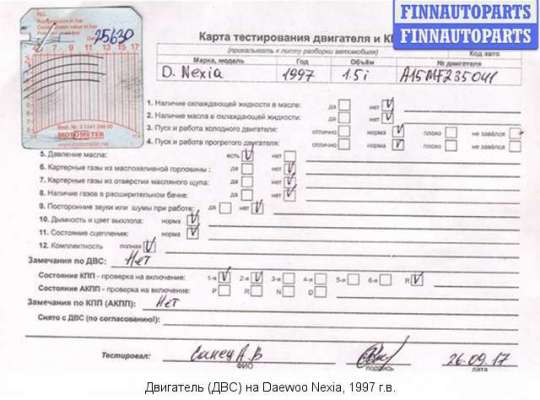 FINNAUTOPARTS
FINNAUTOPARTS
25630
3 5 7 9 11 13
MOTOMETER
Карта тестирования двигателя и К
(прикалывать к листу разборки автомобиля)
Марка, модель Год Объём № двигателя Код авто
D. Nexia 1997 1.5i A15MF235041
1. Наличие охлаждающей жидкости в масле: да нет V
2. Наличие масла в охлаждающей жидкости: да нет V
3. Пуск и работа холодного двигателя: отлично норма V плохо не завёлся
4. Пуск и работа прогретого двигателя: отлично норма V плохо не завёлся
5. Давление масла: есть V нет
6. Картерные газы из маслозаливной горловины: да нет V
7. Картерные газы из отверстия масляного щупа: да нет V
8. Наличие газов в расширительном бачке: да нет V
9. Посторонние звуки или шумы при работе: да нет V
10. Дымность и цвет выхлопа: норма V
11. Состояние сцепления: норма V
12. Комплектность полная V
Замечания по ДВС: Нет
Состояние КПП - проверка на включение: 1-я V 2-я V 3-я 4-я 5-я 6-я R V
Состояние АКПП - проверка на включение: P R N D
Замечания по КПП (АКПП): Нет
Снято с ДВС (по согласованию!):
Тестировал: 26.09.17
ФИО подпись дата
Двигатель (ДВС) на Daewoo Nexia, 1997 г.в.